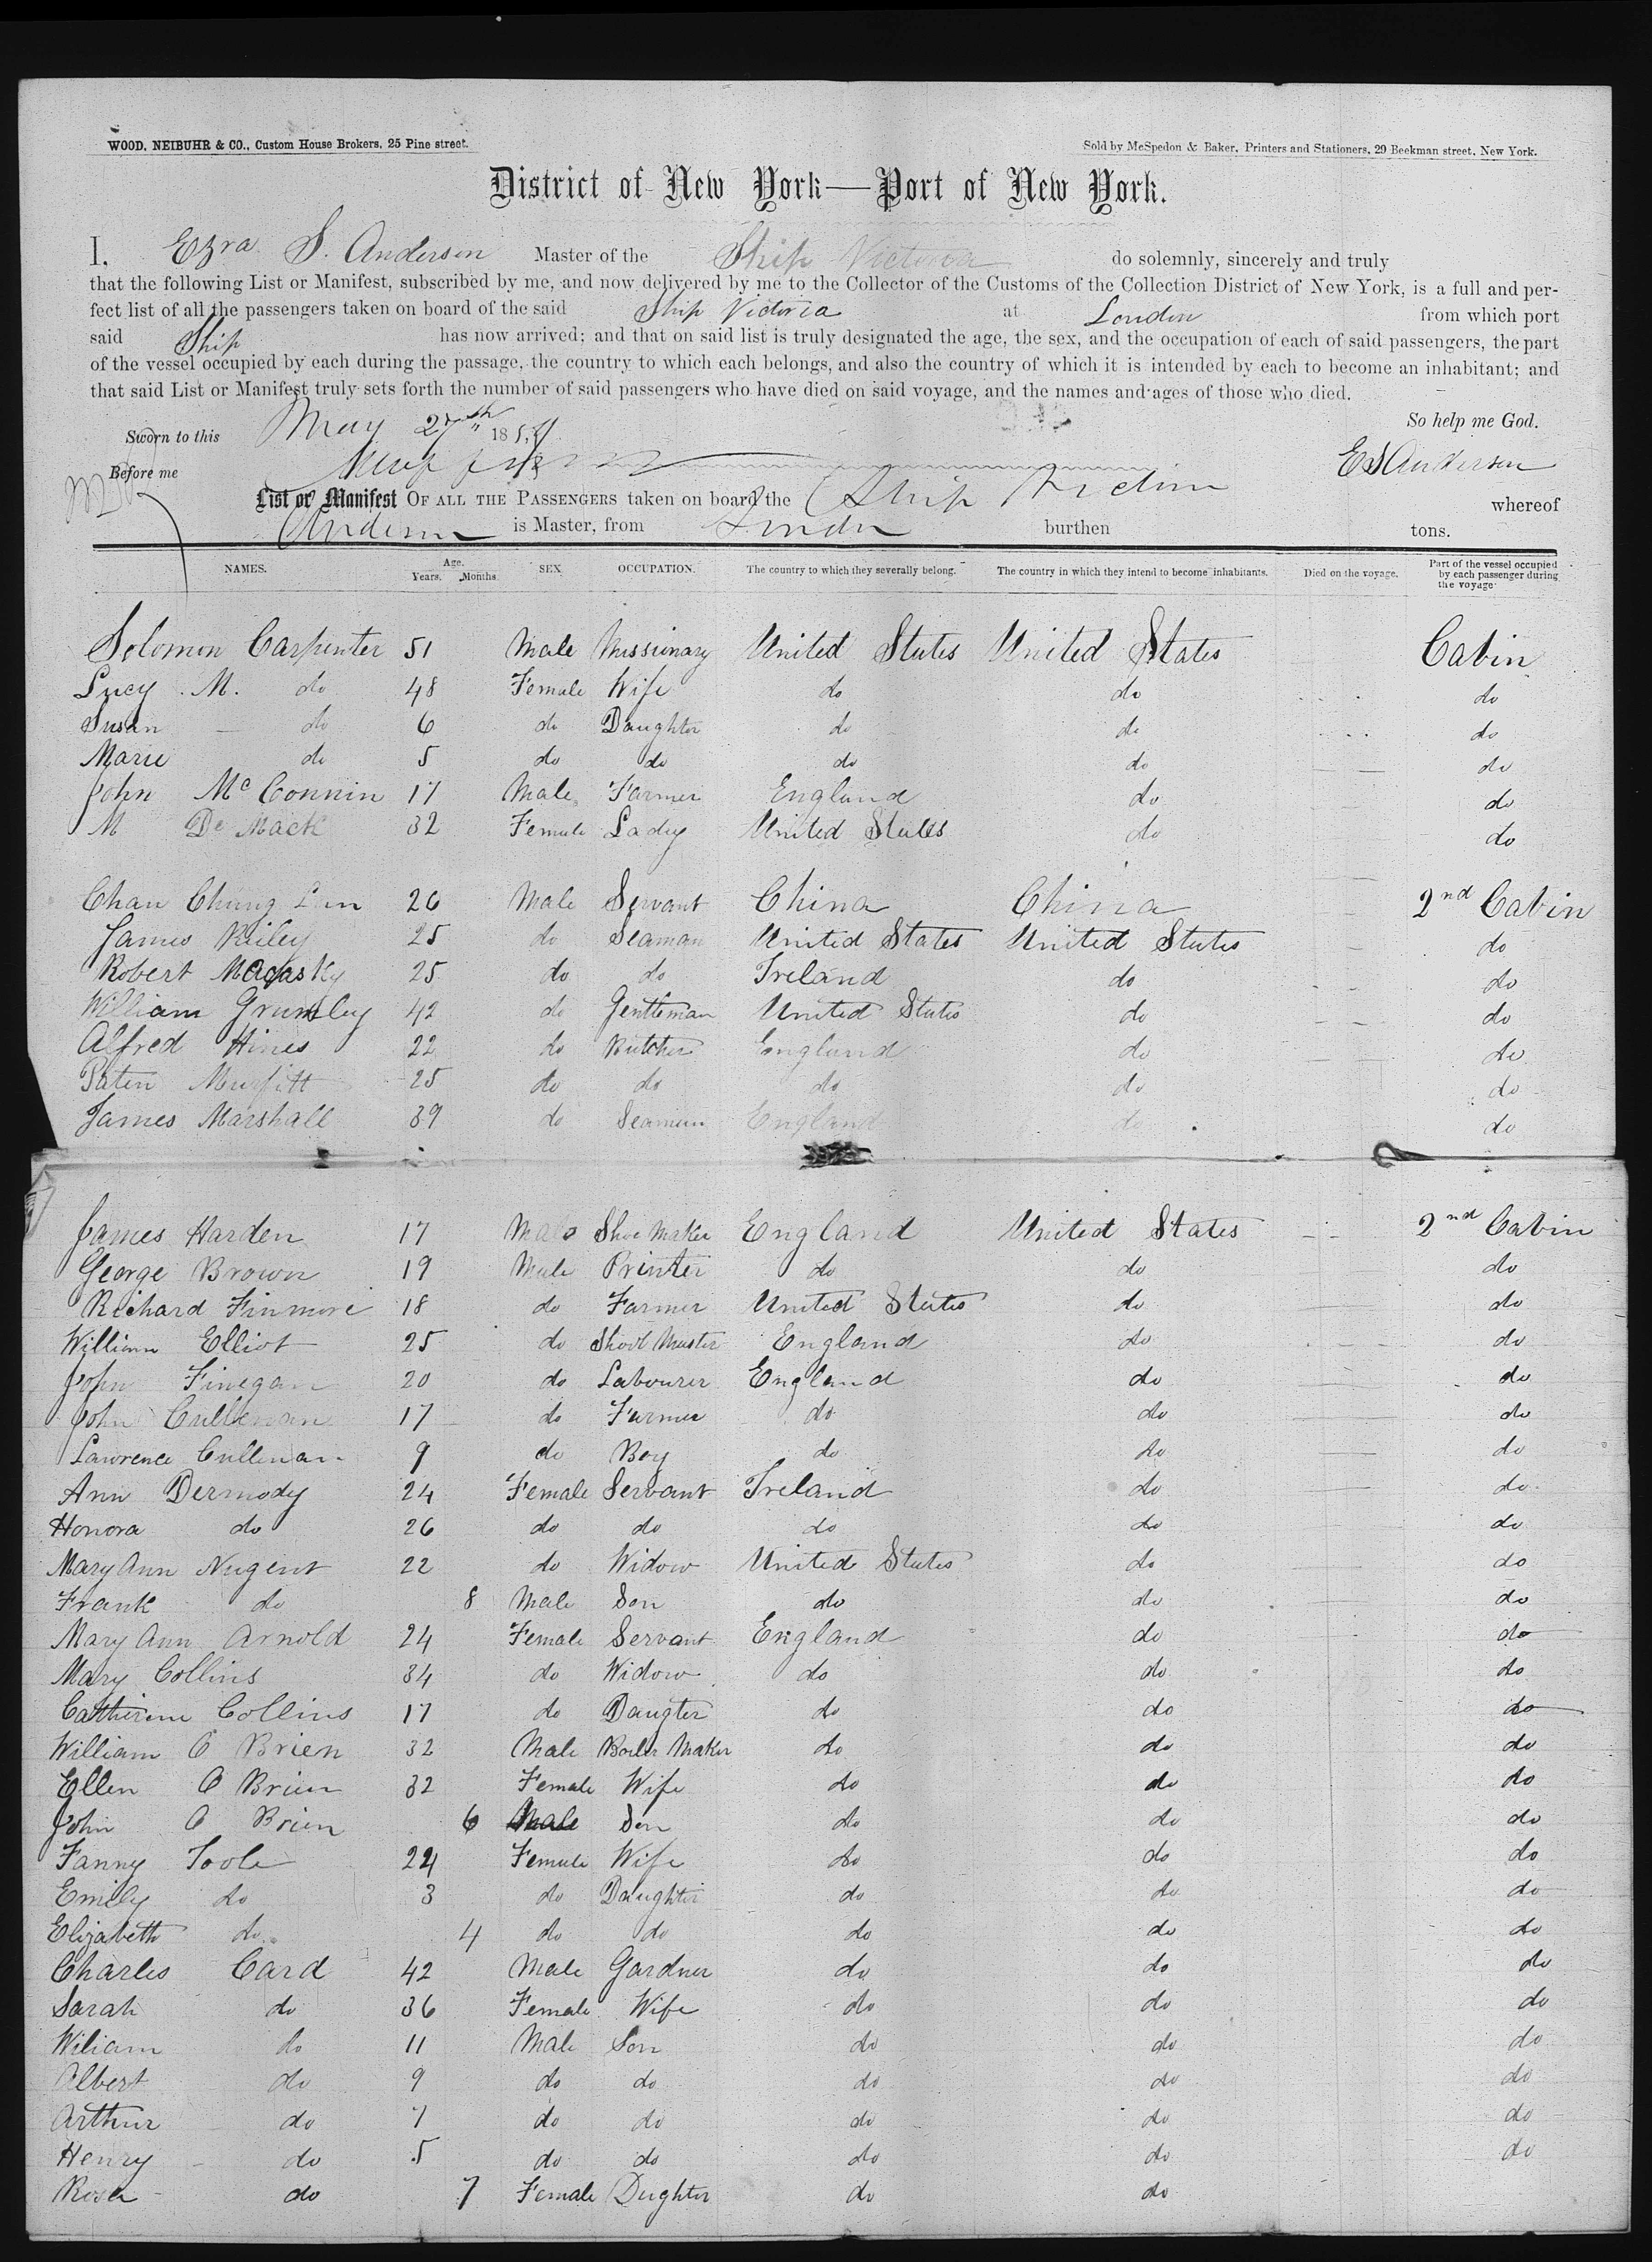 WOOD, NEIBUHR & CO., Custom House Brokers, 25 Pine street. Sold by McSpedon & Baker, Printers and Stationers, 29 Beekman street, New York.
District of New York—Port of New York.
I, Ezra S. Anderson Master of the Ship Victoria do solemnly, sincerely and truly
that the following List or Manifest, subscribed by me, and now delivered by me to the Collector of the Customs of the Collection District of New York, is a full and per-
fect list of all the passengers taken on board of the said Ship Victoria at London from which port
said Ship has now arrived; and that on said list is truly designated the age, the sex, and the occupation of each of said passengers, the part
of the vessel occupied by each during the passage, the country to which each belongs, and also the country of which it is intended by each to become an inhabitant; and
that said List or Manifest truly sets forth the number of said passengers who have died on said voyage, and the names and ages of those who died.
So help me God.
Sworn to this May 27th 185
Before me E S Anderson
List or Manifest OF ALL THE PASSENGERS taken on board the Ship Victoria whereof
Anderson is Master, from London burthen tons.
NAMES. Age. Years. Months. SEX. OCCUPATION. The country to which they severally belong. The country in which they intend to become inhabitants. Died on the voyage. Part of the vessel occupied by each passenger during the voyage
Solomon Carpenter 51 Male Missionary United States United States Cabin
Lucy M. do 48 Female Wife do do do
Susan do 6 do Daughter do do do
Marie do 5 do do do do do
John McConnin 17 Male Farmer England do do
M De Mack 32 Female Lady United States do do
Chau Chung 26 Male Servant China China 2nd Cabin
James Riley 25 do Seaman United States United States do
Robert 25 do do Ireland do do
William Grumley 42 do Gentleman United States do do
Alfred Hines 22 do Butcher England do do
25 do do do do do
James Marshall 39 do Seaman England do do
James Harden 17 Male Shoe Maker England United States 2nd Cabin
George Brown 19 Male Printer do do do
Richard Finmore 18 do Farmer United States do do
William Elliot 25 do England do do
John Finegan 20 do Labourer England do do
John Cullenan 17 do Farmer do do do
Lawrence Cullenan 9 do Boy do do do
Ann Dermody 24 Female Servant Ireland do do
Honora do 26 do do do do do
Mary Ann Nugent 22 do Widow United States do do
Frank do 8 Male Son do do do
Mary Ann Arnold 24 Female Servant England do do
Mary Collins 34 do Widow do do do
Catherine Collins 17 do Daugter do do do
William O Brien 32 Male Boiler Maker do do do
Ellen O Brien 32 Female Wife do do do
John O Brien 6 Male Son do do do
Fanny Toole 24 Female Wife do do do
Emily do 3 do Daughter do do do
Elizabeth do 4 do do do do do
Charles Card 42 Male Gardner do do do
Sarah do 36 Female Wife do do do
Wiliam do 11 Male Son do do do
Albert do 9 do do do do do
Arthur do 7 do do do do do
Henry do 5 do do do do do
Rosa do 7 Female Dughter do do